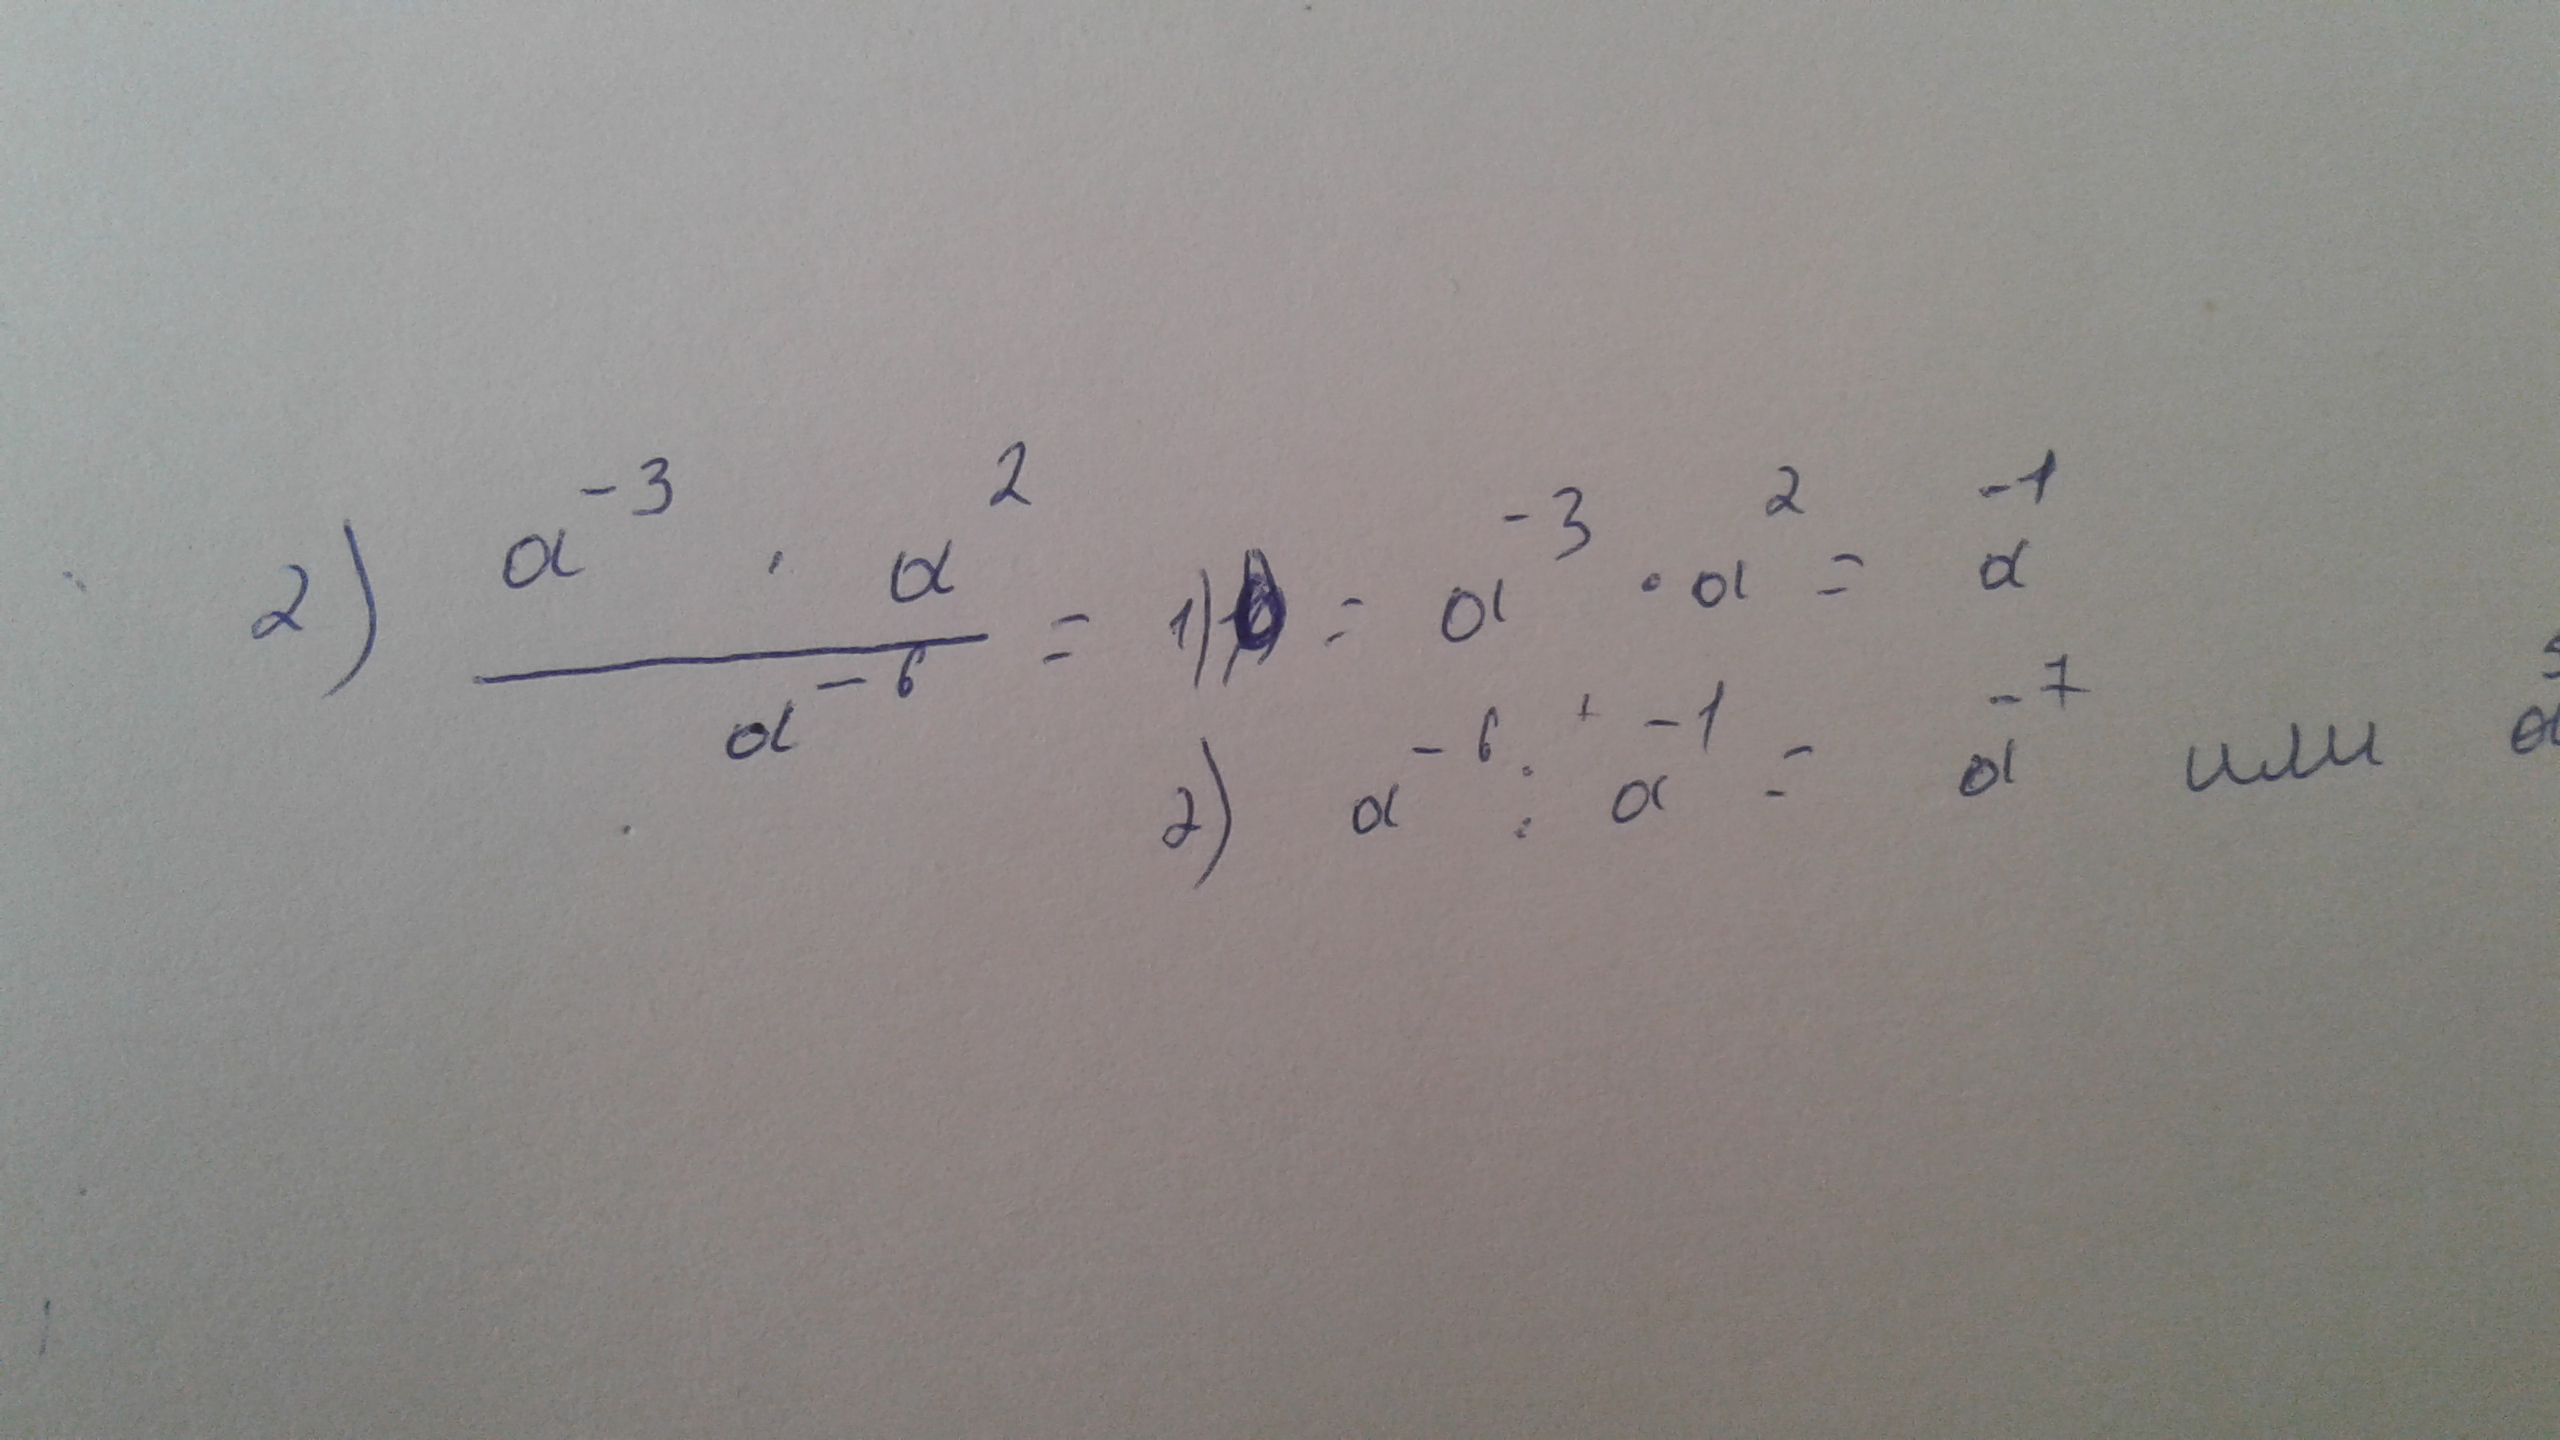 2) a⁻³ · a² / a⁻⁶ = 1) = a⁻³ · a² = a⁻¹
2) a⁻⁶ : a⁻¹ = a⁻⁷ или a